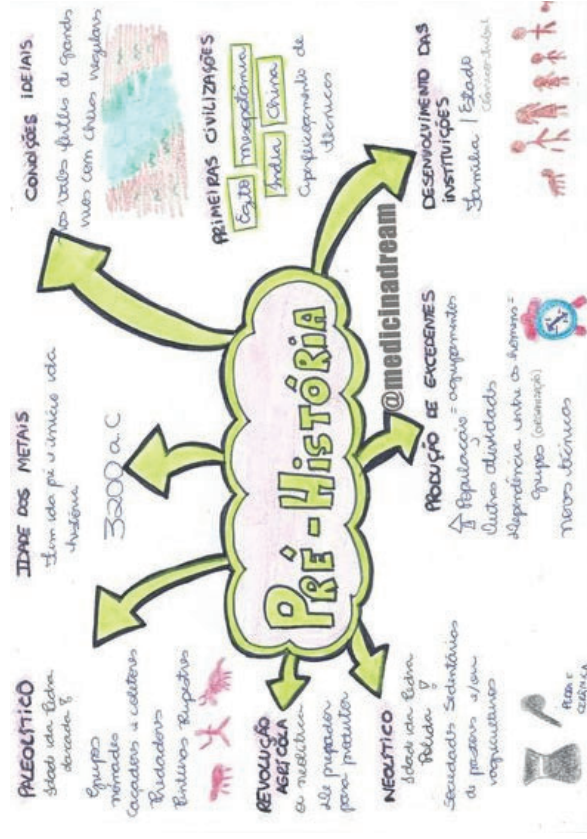 PALEOLÍTICO
Idade da Pedra
Lascada
Grupos
nômades
Caçadores e coletores
Predadores
Pinturas Rupestres
IDADE DOS METAIS
Fim da pré e início da
história
3200 a.C
CONDIÇÕES IDEIAIS
nos vales férteis de grandes
rios com cheias regulares
PRIMEIRAS CIVILIZAÇÕES
Egito Mesopotâmia
Índia China
Aperfeiçoamento de
técnicas
PRÉ-HISTÓRIA
@medicinadream
REVOLUÇÃO
AGRÍCOLA
ou neolítica
de predador
para produtor
NEOLÍTICO
Idade da Pedra
Polida
Sociedades Sedentárias
de pastores e/ou
agricultores
PEDRA E
CERÂMICA
PRODUÇÃO DE EXCEDENTES
População = agrupamentos
Outras atividades
dependência entre os homens =
grupos (ORGANIZAÇÃO)
novas técnicas
DESENVOLVIMENTO DAS
INSTITUIÇÕES
Família / Estado